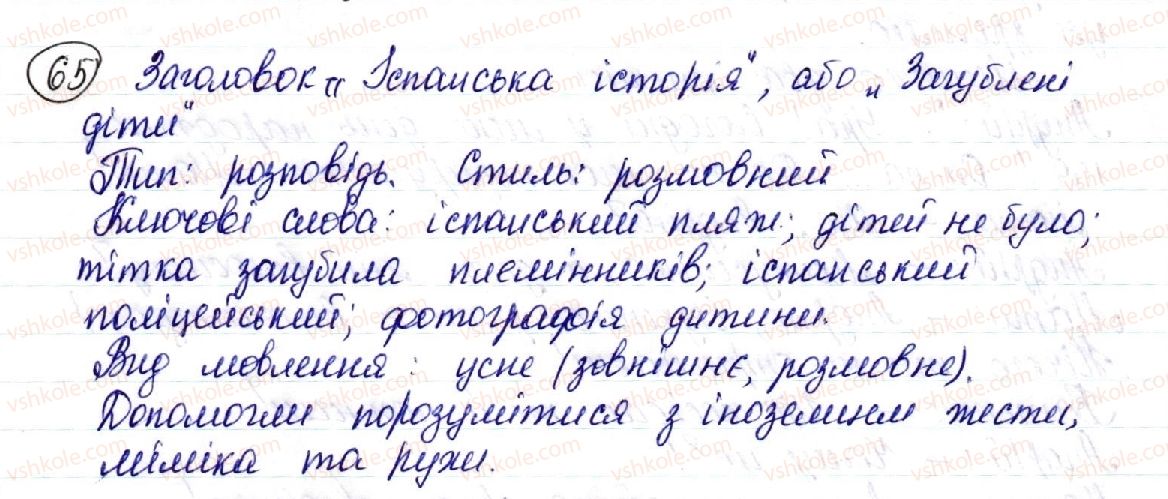 65 Заголовок „Іспанська історія", або „Загублені
діти"
Тип: розповідь. Стиль: розмовний
Ключові слова: іспанський пляж; дітей не було;
тітка загубила племінників; іспанський
поліцейський; фотографія дитини.
Вид мовлення: усне (зовнішнє, розмовне).
Допомогли порозумітися з іноземцем жести,
міміка та рухи.
vshkole.com